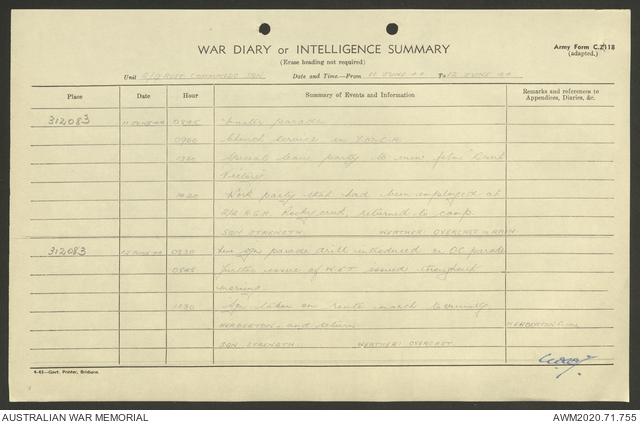 WAR DIARY or INTELLIGENCE SUMMARY
(Erase heading not required)
Army Form C.2118
(adapted.)
Unit 2/9 AUST COMMANDO SQN Date and Time—From 11 JUNE 44 To 12 JUNE 44
Place Date Hour Summary of Events and Information Remarks and references to Appendices, Diaries, &c.
312083 11 JUNE 44 0845 parade
0900 Church service in Y.M.C.A.
Special leave party to view film
Victory
Work party that had been employed at
2/2 A.G.H. Rocky creek, returned to camp.
SQN STRENGTH: WEATHER: OVERCAST RAIN
312083 12 JUNE 44 0830 sqn parade drill introduced in OC parade
0845 Further issue of issued throughout
morning
Sqn taken on route march to vicinity
HERBERTON and return HERBERTON
SQN STRENGTH: WEATHER: OVERCAST
4-43—Govt. Printer, Brisbane.
AUSTRALIAN WAR MEMORIAL AWM2020.71.755